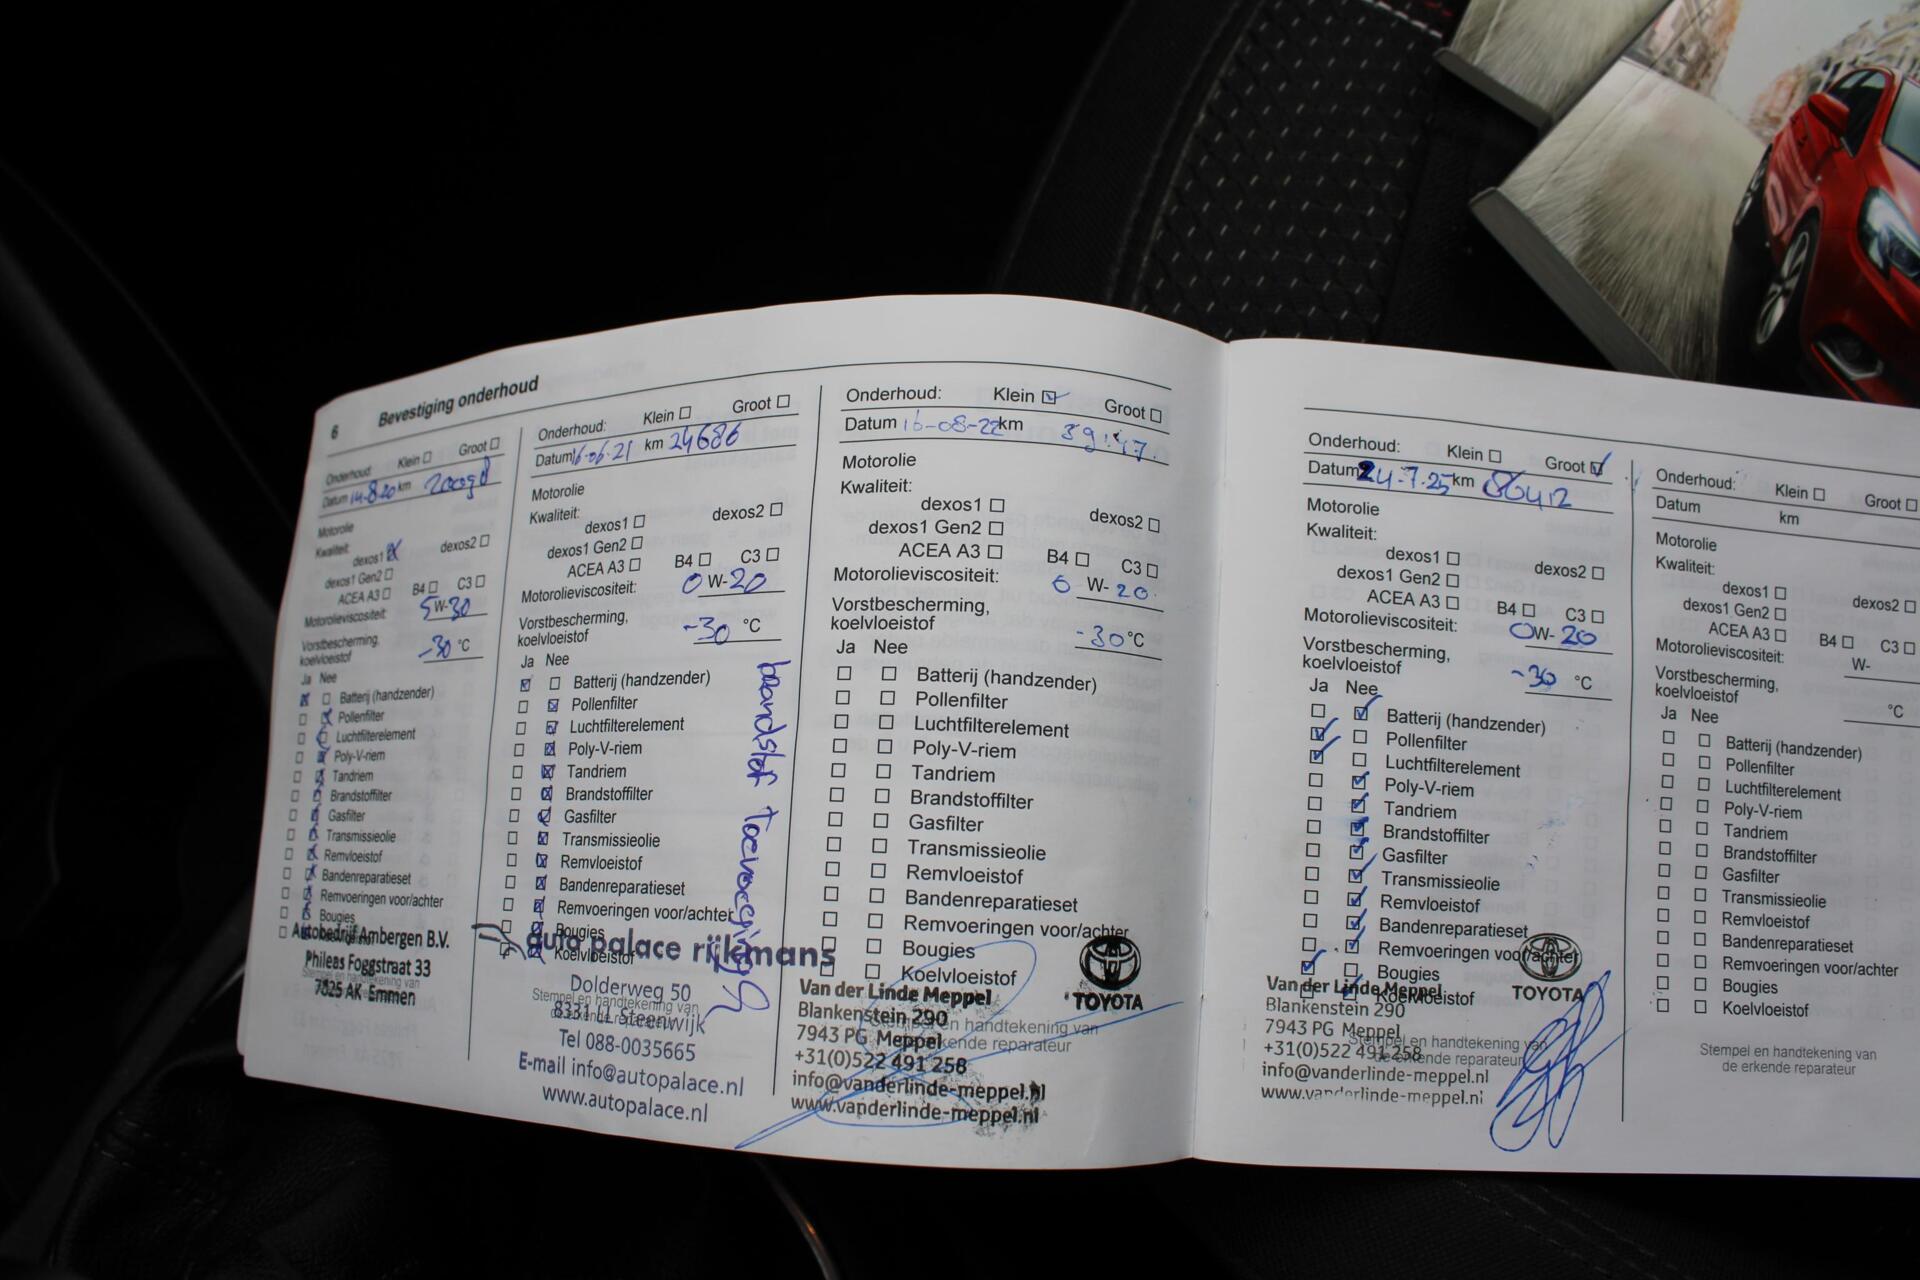 6 Bevestiging onderhoud
Onderhoud: Klein Groot
Datum 14-8-20 km
Motorolie
Kwaliteit:
dexos1 dexos2
dexos1 Gen2
ACEA A3 B4 C3
Motorolieviscositeit: 5W-30
Vorstbescherming,
koelvloeistof -30 °C
Ja Nee
Batterij (handzender)
Pollenfilter
Luchtfilterelement
Poly-V-riem
Tandriem
Brandstoffilter
Gasfilter
Transmissieolie
Remvloeistof
Bandenreparatieset
Remvoeringen voor/achter
Bougies
Autobedrijf Ambergen B.V.
Phileas Foggstraat 33
Stempel en handtekening van
7825 AK Emmen
Onderhoud: Klein Groot
Datum 16-06-21 km 24686
Motorolie
Kwaliteit:
dexos1 dexos2
dexos1 Gen2
ACEA A3 B4 C3
Motorolieviscositeit: 0 W-20
Vorstbescherming,
koelvloeistof -30 °C
Ja Nee
Batterij (handzender)
Pollenfilter
Luchtfilterelement
Poly-V-riem
Tandriem
Brandstoffilter
Gasfilter
Transmissieolie
Remvloeistof
Bandenreparatieset
Remvoeringen voor/achter
Bougies
Koelvloeistof
brandstof toevoeging
auto palace rijkmans
Dolderweg 50
Stempel en handtekening van
8331 LL Steenwijk
de erkende reparateur
Tel 088-0035665
E-mail info@autopalace.nl
www.autopalace.nl
Onderhoud: Klein Groot
Datum 16-08-22 km
Motorolie
Kwaliteit:
dexos1 dexos2
dexos1 Gen2
ACEA A3 B4 C3
Motorolieviscositeit: 0 -W- 20
Vorstbescherming,
koelvloeistof -30 °C
Ja Nee
Batterij (handzender)
Pollenfilter
Luchtfilterelement
Poly-V-riem
Tandriem
Brandstoffilter
Gasfilter
Transmissieolie
Remvloeistof
Bandenreparatieset
Remvoeringen voor/achter
Bougies
Koelvloeistof
TOYOTA
Van der Linde Meppel
Blankenstein 290
Stempel en handtekening van
7943 PG Meppel
de erkende reparateur
+31(0)522 491 258
info@vanderlinde-meppel.nl
www.vanderlinde-meppel.nl
Onderhoud: Klein Groot
Datum 24-7-25 km 86412
Motorolie
Kwaliteit:
dexos1 dexos2
dexos1 Gen2
ACEA A3 B4 C3
Motorolieviscositeit: 0W-20
Vorstbescherming,
koelvloeistof -30 °C
Ja Nee
Batterij (handzender)
Pollenfilter
Luchtfilterelement
Poly-V-riem
Tandriem
Brandstoffilter
Gasfilter
Transmissieolie
Remvloeistof
Bandenreparatieset
Remvoeringen voor/achter
Bougies
Koelvloeistof
TOYOTA
Van der Linde Meppel
Blankenstein 290
7943 PG Meppel
Stempel en handtekening van
+31(0)522 491 258
de erkende reparateur
info@vanderlinde-meppel.nl
www.vanderlinde-meppel.nl
Onderhoud: Klein Groot
Datum km
Motorolie
Kwaliteit:
dexos1 dexos2
dexos1 Gen2
ACEA A3 B4 C3
Motorolieviscositeit: W-
Vorstbescherming,
koelvloeistof °C
Ja Nee
Batterij (handzender)
Pollenfilter
Luchtfilterelement
Poly-V-riem
Tandriem
Brandstoffilter
Gasfilter
Transmissieolie
Remvloeistof
Bandenreparatieset
Remvoeringen voor/achter
Bougies
Koelvloeistof
Stempel en handtekening van
de erkende reparateur